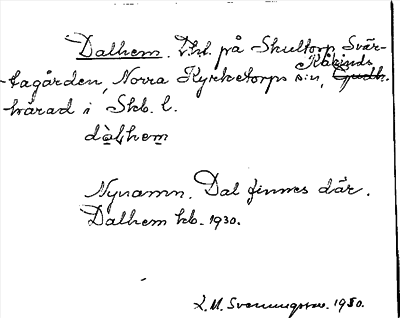 Dalhem. Lht. på Skultorp Svär-
tagården, Norra Kyrketorps sn, Gudh. Kåkinds
härad i Skb. l.
dàlhem
Nynamn. Dal finnes där.
Dalhem kb. 1930.
L.M. Svenungsson. 1950.